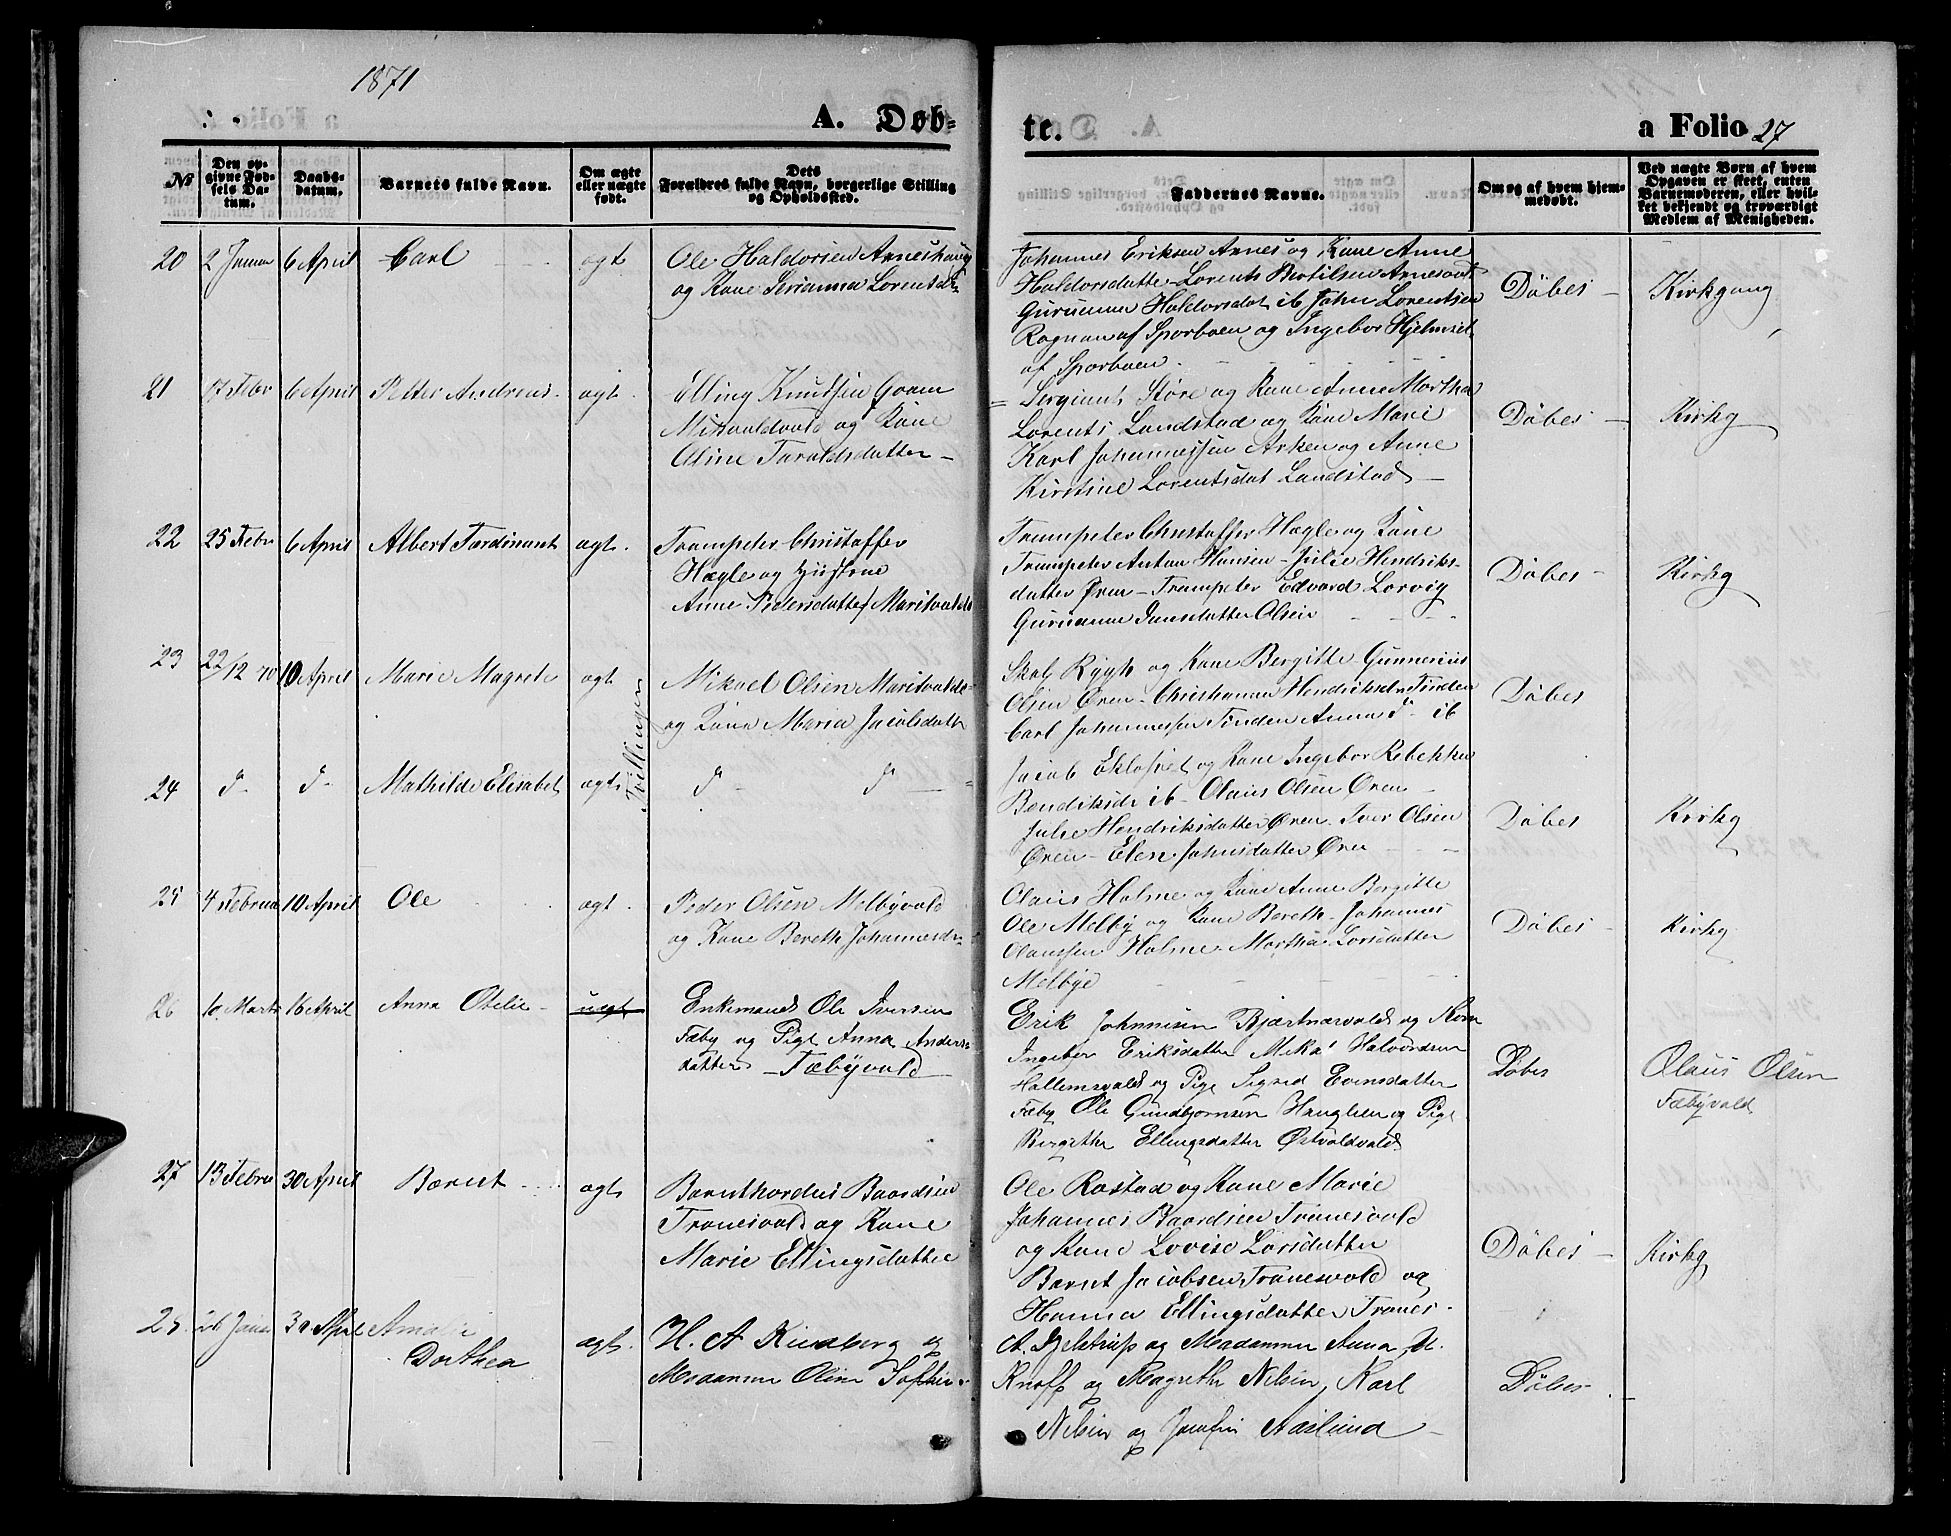 1871
A. Døb=
te.
a Folio 27
No
Den op-
givne Fød-
sels Da-
tum.
Daabs-
datum.
Barnets fulde Navn.
Om ægte
eller uægte
født.
Dets
Forældres fulde Navn, borgerlige Stilling
og Opholdssted.
Faddernes Navne.
Om og af hvem hjem-
medøbt.
Ved uægte Børn af hvem
Opgaven er skeet, enten
Barnemoderen, eller hvil-
ket bekjendt og troværdigt
Medlem af Menigheden.
20 2 Januar 6 April Carl ægt
Ole Haldorsen Arneshaug
og Kone Serianna Lorentsd=
Johannes Eriksen Arnes og Kone Anne
Haldorsdatte Lorents Bertilsen Arnesvold
Gurianna Haldorsdat ib John Lorentsen
Rognan af Sporboen og Ingebor Hjelmset
af Sporboen.
Døbes - Kirkgang
21 17 Febr 6 April Petter Andreas ægt.
Elling Knudsen
og Kone
Oline Taraldsdatter -
Sergiant Støre og Kone Anne Martha
Lorents Landstad og Kone Marie
Karl Johannessen Arken og Anne
Kirstine Lorentsdat Landstad
Døbes - Kirkg
22 25 Febr 6 April Albert Fardinant ægt.
Trampeter Christoffer
Hægle og Hustrue
Anne Pedersdatter Maritvolds
Trumpeter Christoffer Hægle og Kone
Trumpeter Anton Hansen - Julie Hendriks-
datter Øren - Trumpeter Edvard Lorvig
Gurianna Jansdatter Olsen
Døbes - Kirkg
23 22/12 70 10 April Marie Magrete ægt
Tvillinger
Mikael Olsen Maritvolds
og Kone Maria Jacobsdatt
Rygh og Kone Bergitte Gunnerius
Olsen Øren - Christianna Hendriksd. Tinden
Carl Johannessen Tinden Anna do ib
Døbes
24 do do Mathilde Elisabet ægt
do do
Jacob Eklosvet og Kone Ingebor Rebekka
Bendiksdr ib - Olaus Olsen Øren -
Julie Hendriksdatter Øren. Iver Olsen
Øren - Elen Johnsdatter Øren
Døbes Kirkg
25 4 Februa 10 April Ole ægt.
Peder Olsen Melbyvold
og Kone Bereth Johannesdr=
Olaus Holme og Kone Anne Bergitte
Ole Melby og Kone Bereth - Johannes
Olaussen Holme - Martha Larsdatter
Melbye
Døbes - Kirkg
26 10 Marts 16 April Anna Otelie - uægt
Enkemand Ole Iversen
Fæby og Pige Anna Anders=
datter - Fæbyvold
Erik Johnnisen Bjartnesvold og Kone
Ingeber Eriksdatter Mikal Halvordsen
Hallemsvald og Pige Sigrid Evensdatter
Fæby Ole Gundbjørnsen Hauglien og Pige
Bergitha Ellingsdatter Østvoldvald
Døbes Olaus Olsen
Fæbyvald
27 13 Febru 30 April Bærnt ægt
Bærnthardus Baardsen
Tronesvold og Kone
Marie Ellingsdatter
Ole Rostad og Kone Marie
Johannes Baardsen Tronesvold
og Kone Lovise Larsdatter
Barnt Jacobsen Tronesvold og
Hanna Ellingsdatter Trones.
Døbes - Kirkg
28. 26 Janu 30 April Amalie
Dorthea ægt.
H. A Kindberg og
Madamme Oline Sofhie.
A. Jelstrup og Madamme Anna M.
Knoff og Magrethe Nilsen, Karl
Nilsen og Josefin Naslund
Døbes